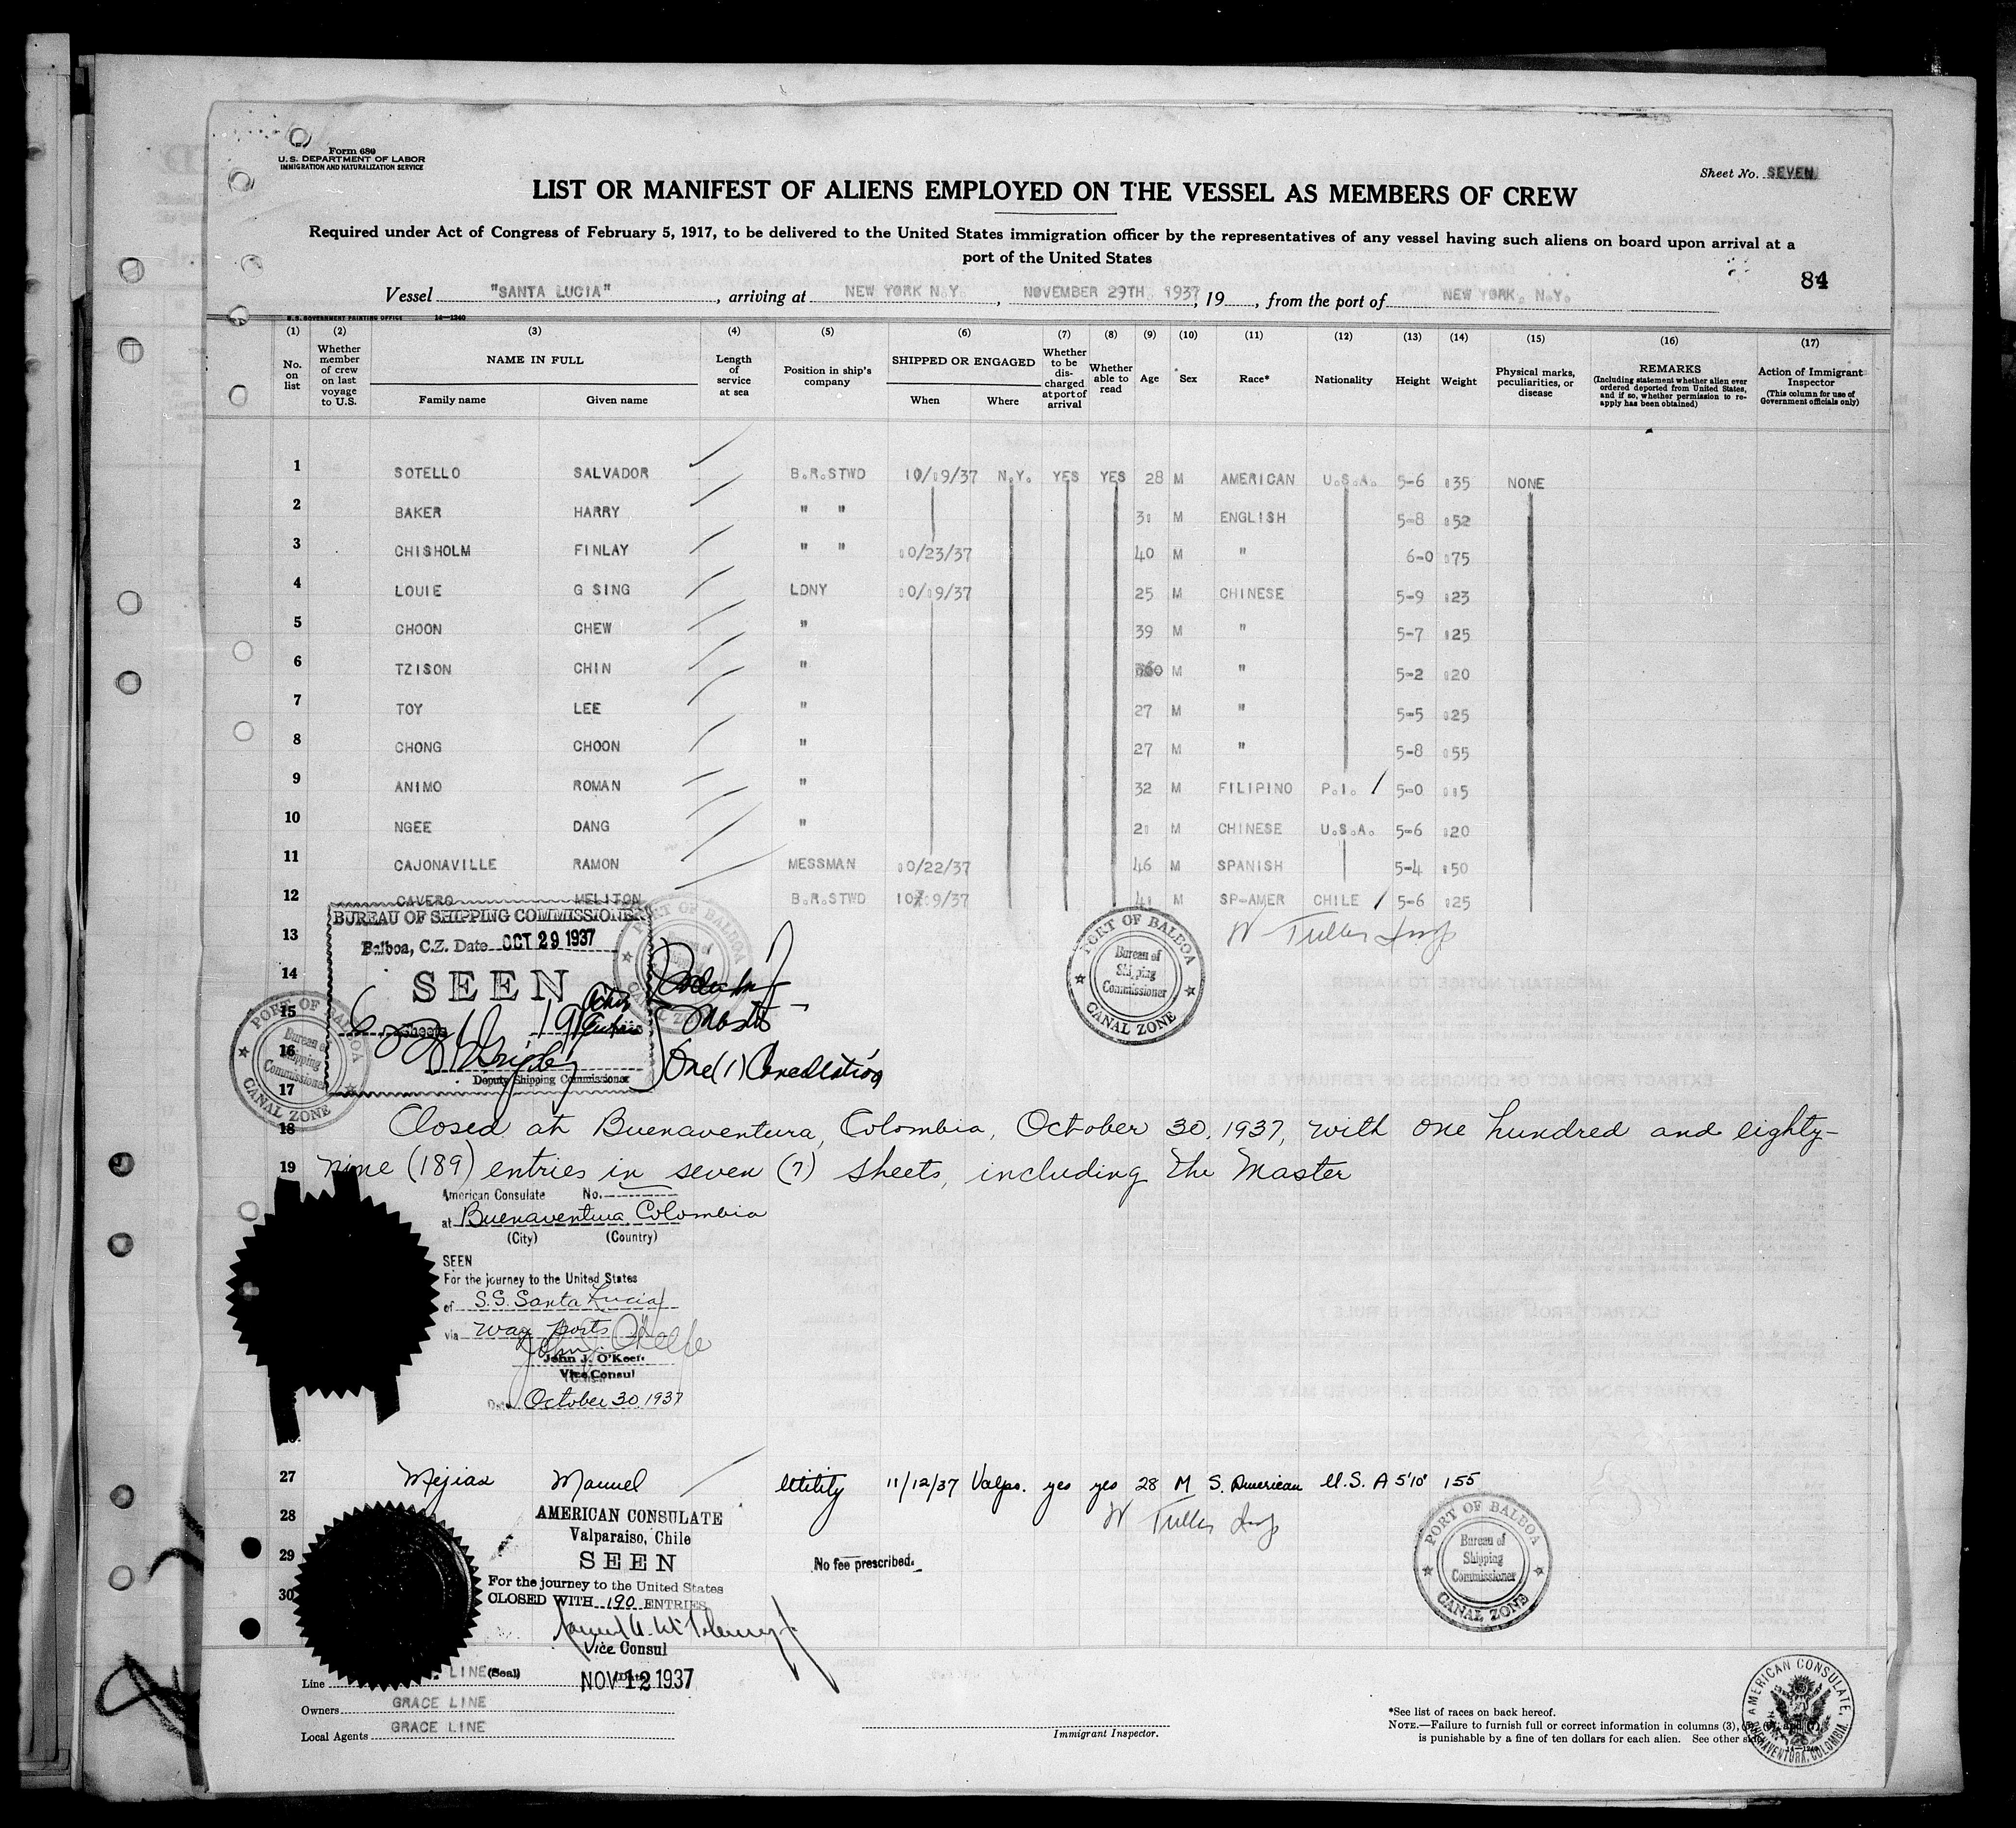 Form 680
U. S. DEPARTMENT OF LABOR
IMMIGRATION AND NATURALIZATION SERVICE
Sheet No. SEVEN
LIST OR MANIFEST OF ALIENS EMPLOYED ON THE VESSEL AS MEMBERS OF CREW
Required under Act of Congress of February 5, 1917, to be delivered to the United States immigration officer by the representatives of any vessel having such aliens on board upon arrival at a
port of the United States
84
Vessel "SANTA LUCIA", arriving at NEW YORK N.Y., NOVEMBER 29TH 1937, 19, from the port of NEW YORK, N.Y.
U. S. GOVERNMENT PRINTING OFFICE 14—1240
(1) (2) (3) (4) (5) (6) (7) (8) (9) (10) (11) (12) (13) (14) (15) (16) (17)
No. on list
Whether member of crew on last voyage to U.S.
NAME IN FULL
Family name Given name
Length of service at sea
Position in ship's company
SHIPPED OR ENGAGED
When Where
Whether to be discharged at port of arrival
Whether able to read
Age
Sex
Race*
Nationality
Height
Weight
Physical marks, peculiarities, or disease
REMARKS
(Including statement whether alien ever ordered deported from United States, and if so, whether permission to reapply has been obtained)
Action of Immigrant Inspector
(This column for use of Government officials only)
1 SOTELLO SALVADOR B.R.STWD 10/19/37 N.Y. YES YES 28 M AMERICAN U.S.A. 5-6 135 NONE
2 BAKER HARRY " " 31 M ENGLISH 5-8 152
3 CHISHOLM FINLAY " " 10/23/37 40 M " 6-0 175
4 LOUIE G SING LDNY 10/19/37 25 M CHINESE 5-9 123
5 CHOON CHEW " 39 M " 5-7 125
6 TZISON CHIN " M " 5-2 120
7 TOY LEE " 27 M " 5-5 125
8 CHONG CHOON " 27 M " 5-8 155
9 ANIMO ROMAN " 32 M FILIPINO P.I. 5-0 115
10 NGEE DANG " 21 M CHINESE U.S.A. 5-6 120
11 CAJONAVILLE RAMON MESSMAN 10/22/37 46 M SPANISH 5-4 150
12 CAVERO MELITON B.R.STWD 10/19/37 41 M SP-AMER CHILE 5-6 125
W Tuller Insp
BUREAU OF SHIPPING COMMISSIONER
Balboa, C.Z. Date OCT 29 1937
SEEN
6 Sheets 191
Deputy Shipping Commissioner
Master
One (1) Cancellation
PORT OF BALBOA
Bureau of Shipping Commissioner
CANAL ZONE
PORT OF BALBOA
Bureau of Shipping Commissioner
CANAL ZONE
PORT OF BALBOA
Bureau of
CANAL ZONE
13
14
15
16
17
18 Closed at Buenaventura, Colombia, October 30, 1937, with one hundred and eighty-
19 nine (189) entries in seven (7) sheets, including the Master
American Consulate No.
at Buenaventura Colombia
(City) (Country)
SEEN
For the journey to the United States
of S.S. Santa Lucia
via way ports
John J. O'Keefe
John J. O'Keefe
Vice Consul
Date October 30, 1937
27 Mejias Manuel Utility 11/12/37 Valpo. yes yes 28 M S. American U.S.A 5'10" 155
W Tuller Insp
28
29
30
AMERICAN CONSULATE
Valparaiso, Chile
SEEN
For the journey to the United States
CLOSED WITH 190 ENTRIES
Vice Consul
No fee prescribed.
PORT OF BALBOA
Bureau of Shipping Commissioner
CANAL ZONE
Line LINE (Seal)
NOV 12 1937
Owners GRACE LINE
Local Agents GRACE LINE
Immigrant Inspector.
*See list of races on back hereof.
NOTE.—Failure to furnish full or correct information in columns (3),
is punishable by a fine of ten dollars for each alien. See other
14—1240
AMERICAN CONSULATE,
BUENAVENTURA, COLOMBIA.